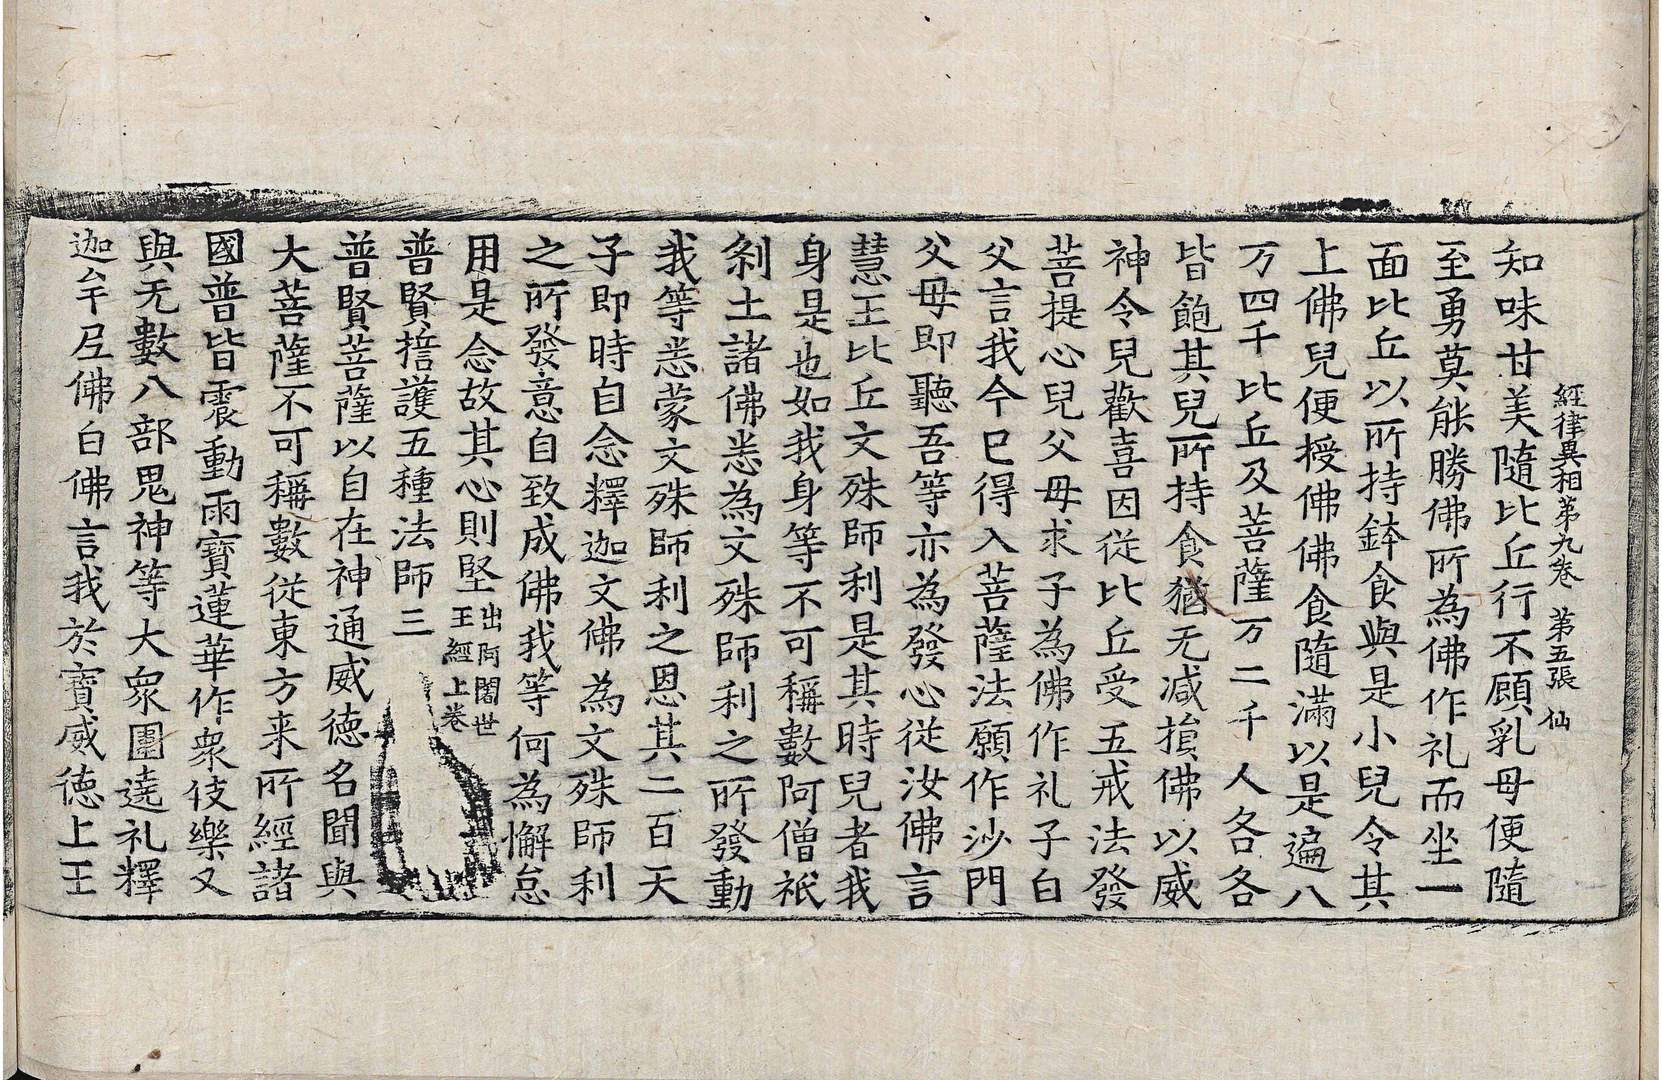 經律異相第九卷 第五張 仙
知味甘美隨比丘行不顧乳母便隨
至勇莫能勝佛所為佛作礼而坐一
面比丘以所持鉢食與是小兒令其
上佛兒便授佛佛食隨滿以是遍八
万四千比丘及菩薩万二千人各各
皆飽其兒所持食猶无減損佛以威
神令兒歡喜因從比丘受五戒法發
菩提心兒父母求子為佛作礼子白
父言我今已得入菩薩法願作沙門
父母即聽吾等亦為發心從汝佛言
慧王比丘文殊師利是其時兒者我
身是也如我身等不可稱數阿僧祇
刹土諸佛悉為文殊師利之所發動
我等悉蒙文殊師利之恩其二百天
子即時自念釋迦文佛為文殊師利
之所發意自致成佛我等何為懈怠
用是念故其心則堅出阿闍世王經上卷
普賢擔護五種法師三
普賢菩薩以自在神通威德名聞與
大菩薩不可稱數從東方来所經諸
國普皆震動雨寶蓮華作衆伎樂又
與无數八部鬼神等大衆圍遶礼釋
迦牟尼佛白佛言我於寶威德上王